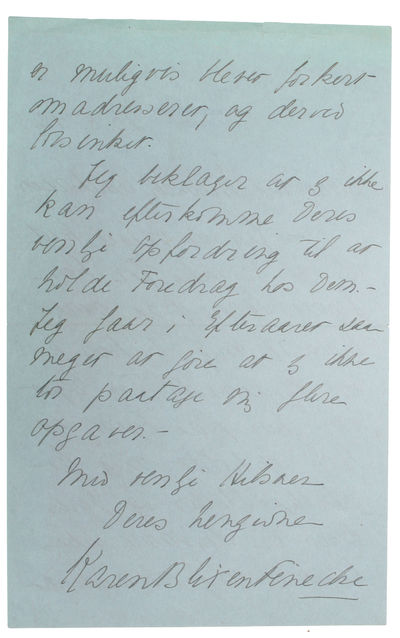 er muligvis blever forkert
omadresseret, og derved
forsinket.
Jeg beklager at jeg ikke
kan efterkomme Deres
venlige Opfordring til at
holde Foredrag hos Dem.-
Jeg faar i Efteraaret saa
meget at gøre at jeg ikke
tør paatage mig flere
Opgaver.-
Med venlig Hilsner
Deres hengivne
Karen Blixen Finecke